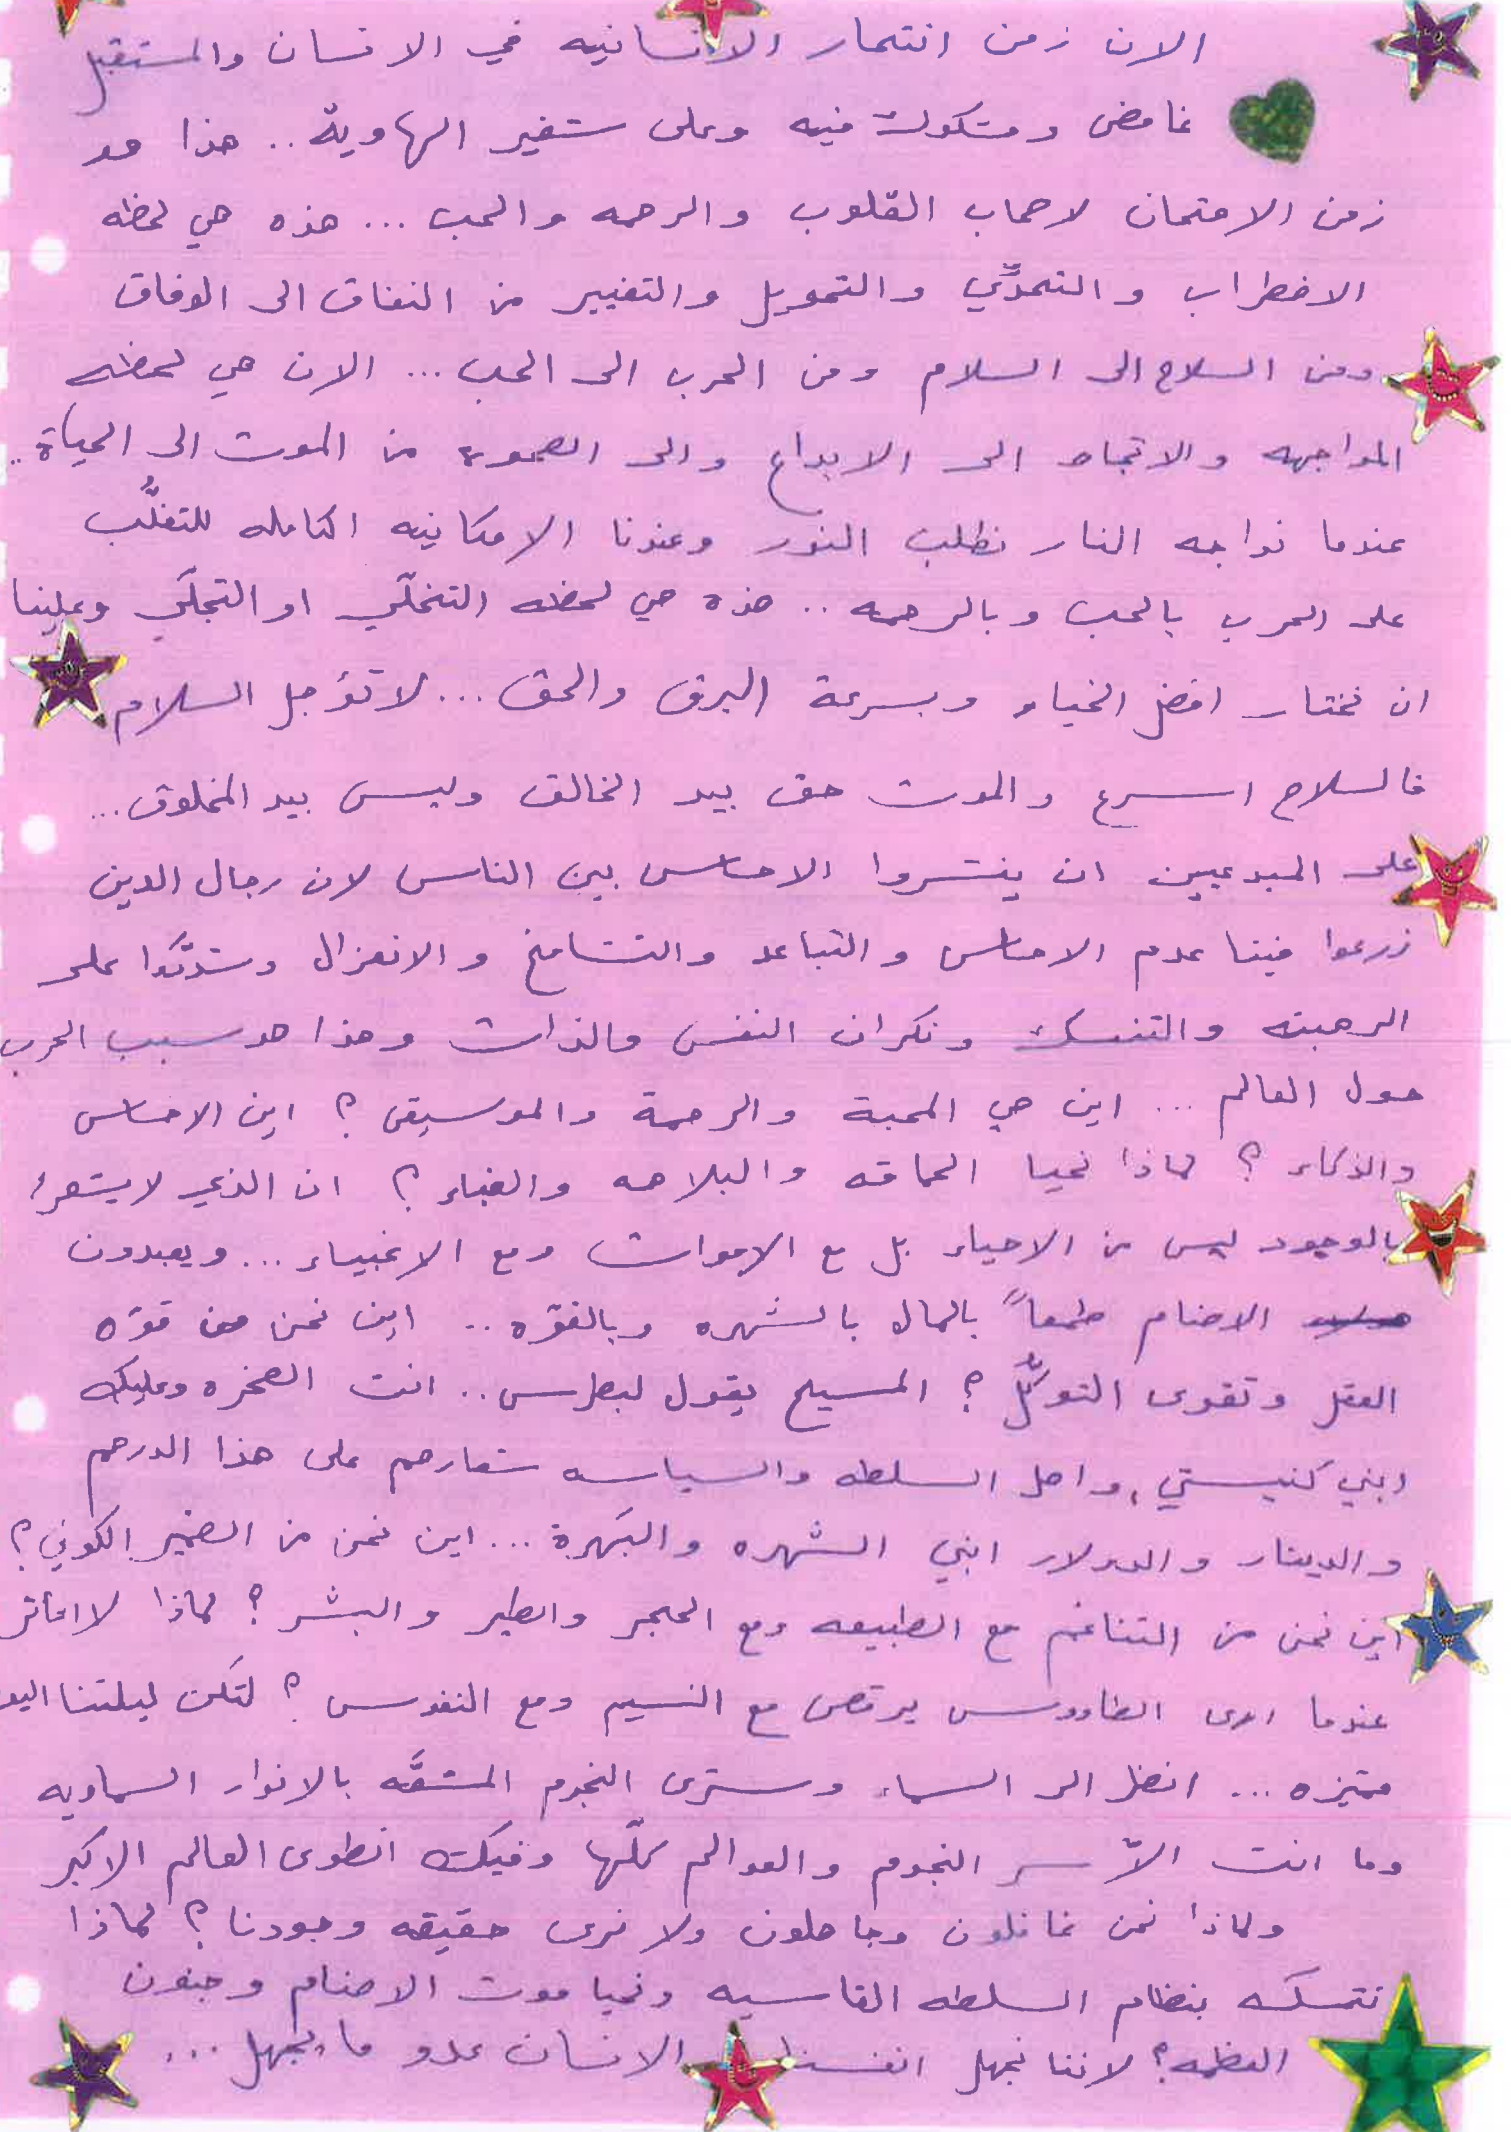 الان زمن انتحار الانسانيه في الانسان والمستقبل
غامض ومشكوك فيه وعلى شفير الهاوية .. هذا هو
زمن الامتحان لاصحاب القلوب والرحمه والحب ... هذه هي لحظه
الاضطراب والتحدّي والتحويل والتغيير من النفاق الى الوفاق
ومن السلاح الى السلام ومن الحرب الى الحب ... الان هي لحظه
المواجهه والاتجاه الى الابداع والى الصحوه من الموت الى الحياة ..
عندما نواجه النار نطلب النور وعندنا الامكانيه الكامله للتغلُّب
على الحرب بالحب وبالرحمه .. هذه هي لحظه التخلّي او التجلّي وعلينا
ان نختار افضل الخيار وبسرعة البرق والحق ... لا تؤجل السلام
فالسلاح اسرع والموت حق بيد الخالق وليس بيد المخلوق ...
على المبدعيين ان ينشروا الاحساس بين الناس لان رجال الدين
زرعوا فينا عدم الاحساس والتباعد والتشامخ والانعزال وشدّدوا على
الرهبنه والتنسك ونكران النفس والذات وهذا هو سبب الحرب
حول العالم ... اين هي المحبة والرحمة والموسيقى ؟ اين الاحساس
والذكاء ؟ لماذا نحيا الحماقه والبلاهه والغباء ؟ ان الذي لا يشعر
بالوجود ليس من الاحياء بل مع الاموات ومع الاغبياء ... ويعبدون
الاصنام طمعاً بالمال بالشهره وبالقوّه .. اين نحن من قوّه
العقل وتقوى التوكّل ؟ المسيح يقول لبطرس .. انت الصخره وعليك
ابني كنيستي، واهل السلطه والسياسه شعارهم على هذا الدرهم
والدينار والدولار ابني الشهره والبَهرة ... اين نحن من الضمير الكوني ؟
اين نحن من التناغم مع الطبيعه ومع الحجر والطير والبشر ؟ لماذا لا اتأثر
عندما ارى الطاووس يرقص مع النسيم ومع النفوس ؟ لتكن ليلتنا اليوم
مميزه ... انظر الى السماء وسترى النجوم المشعَّه بالانوار السماويه
وما انت الاّ سر النجوم والعوالم كلّها وفيك انطوى العالم الاكبر
ولماذا نحن غافلون وجاهلون ولا نرى حقيقه وجودنا ؟ لماذا
نتمسك بنظام السلطه القاسيه ونحيا موت الاصنام وجنون
العظمه ؟ لاننا نجهل انفسنا الانسان عدو ما يجهل ...